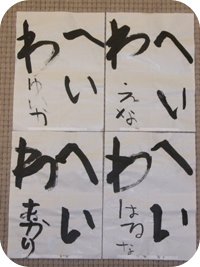 へい
わ
えな
へい
わ
ゆいか
へい
わ
はるな
へい
わ
あかり